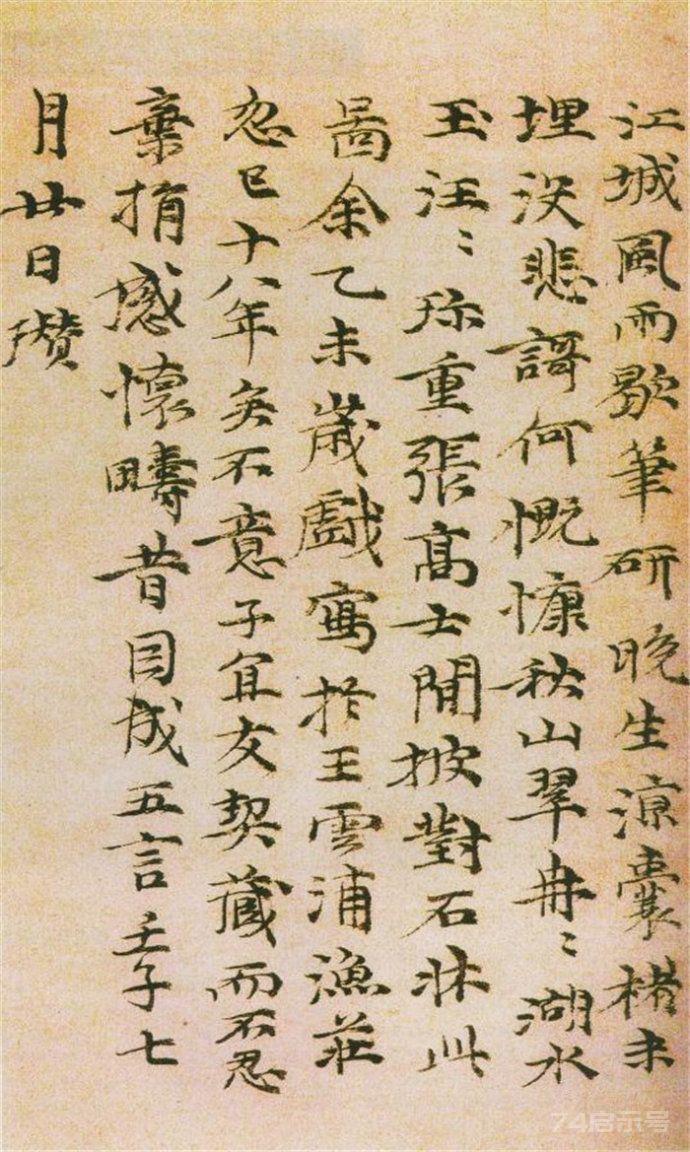 江城風雨歇筆研晚生涼囊楮未
埋没悲謌何慨慷秋山翠冉〻湖水
玉汪〻珎重張高士閒披對石牀此
啚余乙未歲戲寫於王雲浦漁莊
忽已十八年矣不意子宜友契藏而不忍
棄捐感懷疇昔因成五言壬子七
月廿日瓚
74启示号